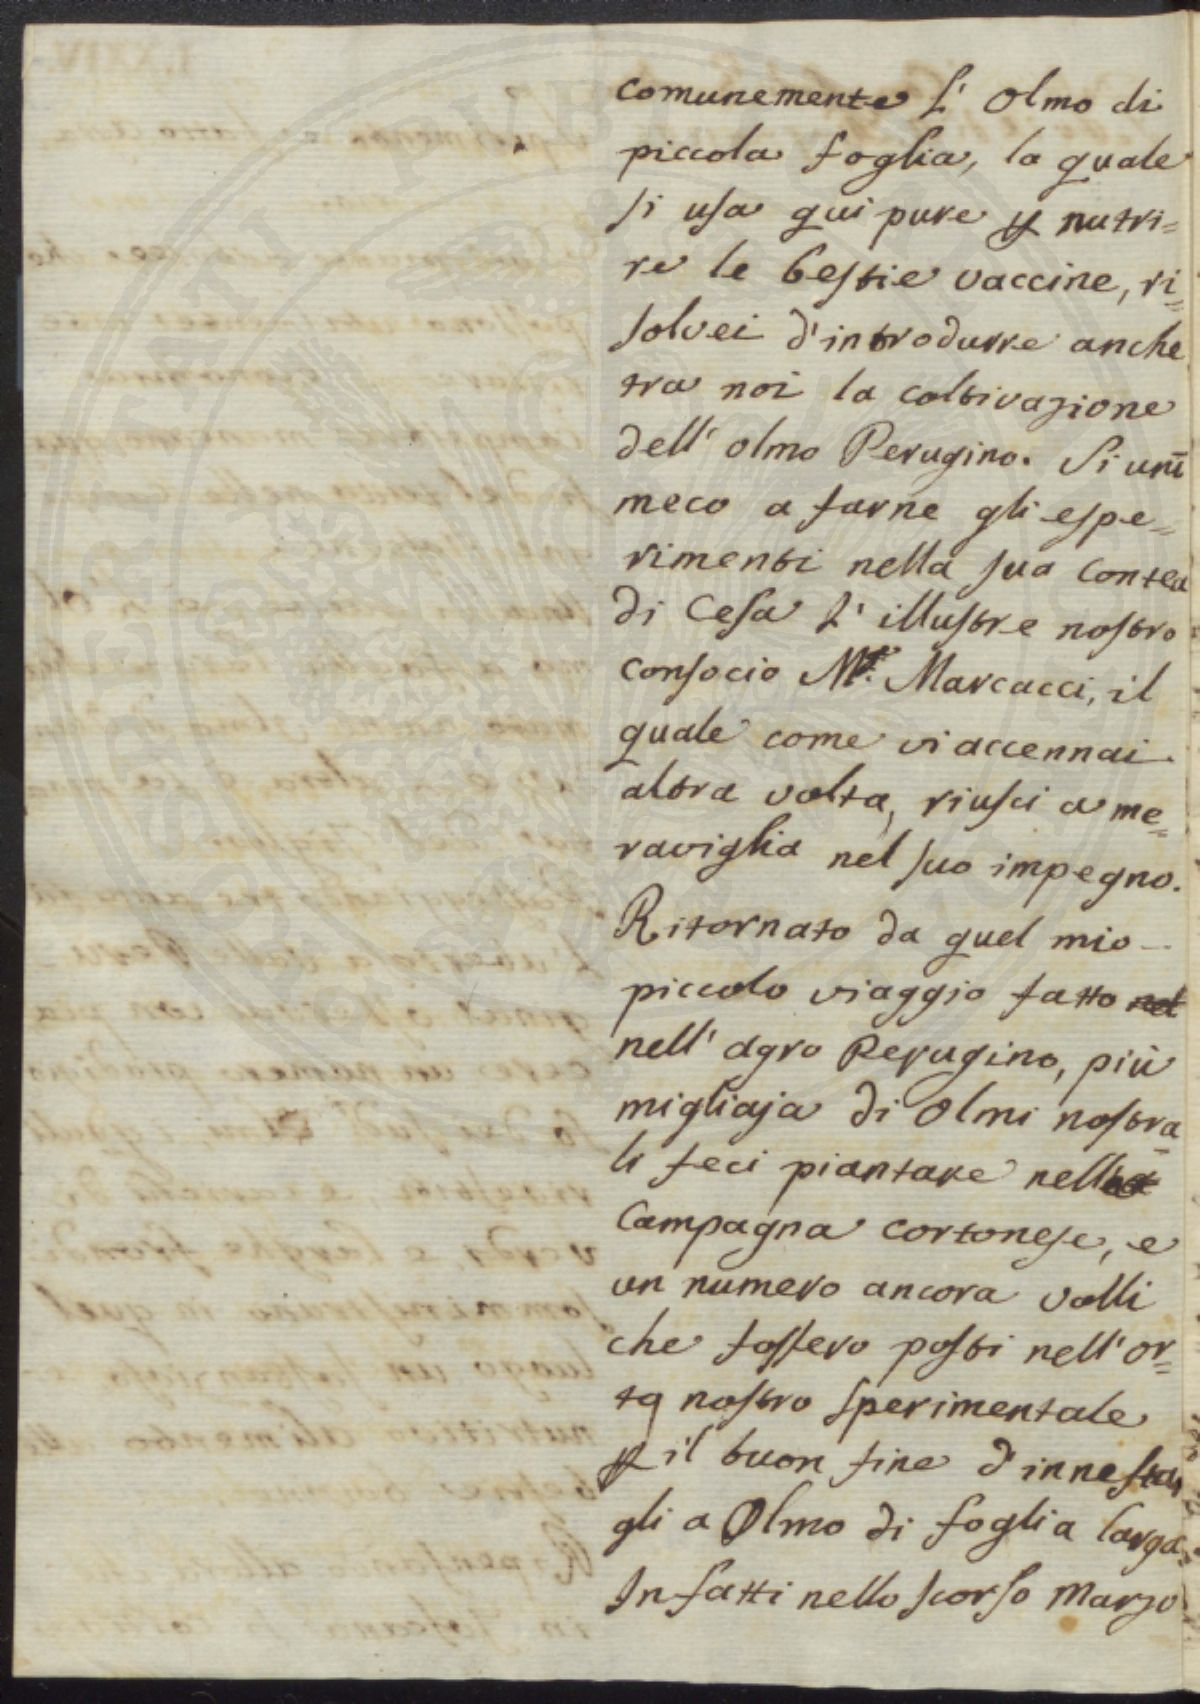 comunemente l' Olmo di
piccola foglia, la quale
si usa qui pure ꝑ nutri=
re le bestie vaccine, ri=
solvei d'introdurre anche
tra noi la coltivazione
dell' olmo Perugino. Si unì
meco a farne gli espe=
rimenti nella sua Contea
di Cesa l' illustre nostro
consocio Marcacci, il
quale come vi accennai
altra volta, riuscì a me=
raviglia nel suo impegno.
Ritornato da quel mio
piccolo viaggio fatto nel
nell' agro Perugino, più
migliaja di Olmi nostra
li feci piantare nella
Campagna cortonese, e
un numero ancora volli
che fossero posti nell' or=
to nostro sperimentale
ꝑ il buon fine d' innestar
gli a Olmo di foglia larga.
Infatti nello scorso Marzo